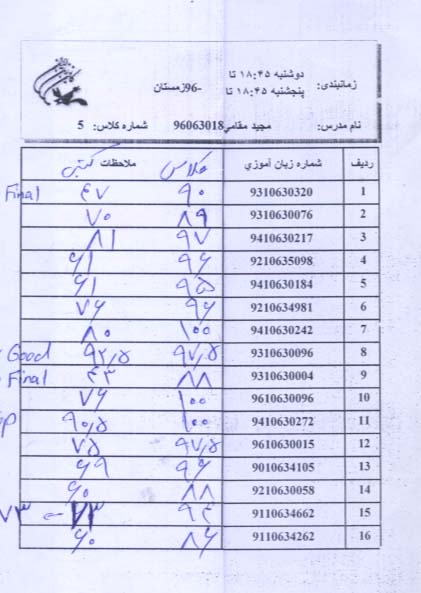 زمانبندی: دوشنبه ۱۸:۴۵ تا
پنجشنبه ۱۸:۴۵ تا
96-زمستان
نام مدرس: مجید مقامی96063018 شماره کلاس: 5
ردیف شماره زبان آموزي کلاس ملاحظات کتبی
1 9310630320 ۹۰ ۴۷ Final
2 9310630076 ۸۹ ۷۰
3 9410630217 ۹۷ ۸۱
4 9210635098 ۹۶ ۶۱
5 9410630184 ۹۵ ۶۱
6 9210634981 ۹۶ ۷۶
7 9410630242 ۱۰۰ ۸۰
8 9310630096 ۹۷,۵ ۹۲,۵ Good
9 9310630004 ۸۸ ۴۳ Final
10 9610630096 ۱۰۰ ۷۶
11 9410630272 ۱۰۰ ۹۰,۵
12 9610630015 ۹۷,۵ ۷۵
13 9010634105 ۹۶ ۶۹
14 9210630058 ۸۸ ۶۰
15 9110634662 ۹۴ ۷۳ ← ۷۳
16 9110634262 ۸۶ ۶۰